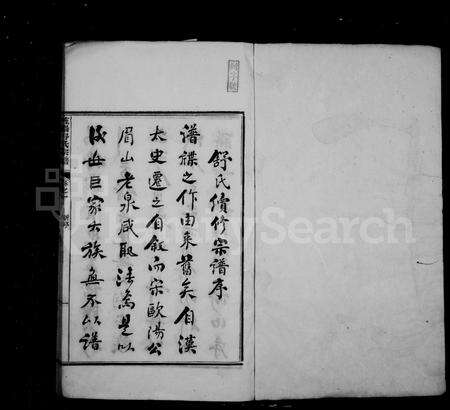 舒氏續修宗譜序
譜牒之作由来舊矣自漢
太史遷之自敘而宋歐陽公
眉山老泉咸取法焉是以
後世巨家大族無不以譜
FamilySearch